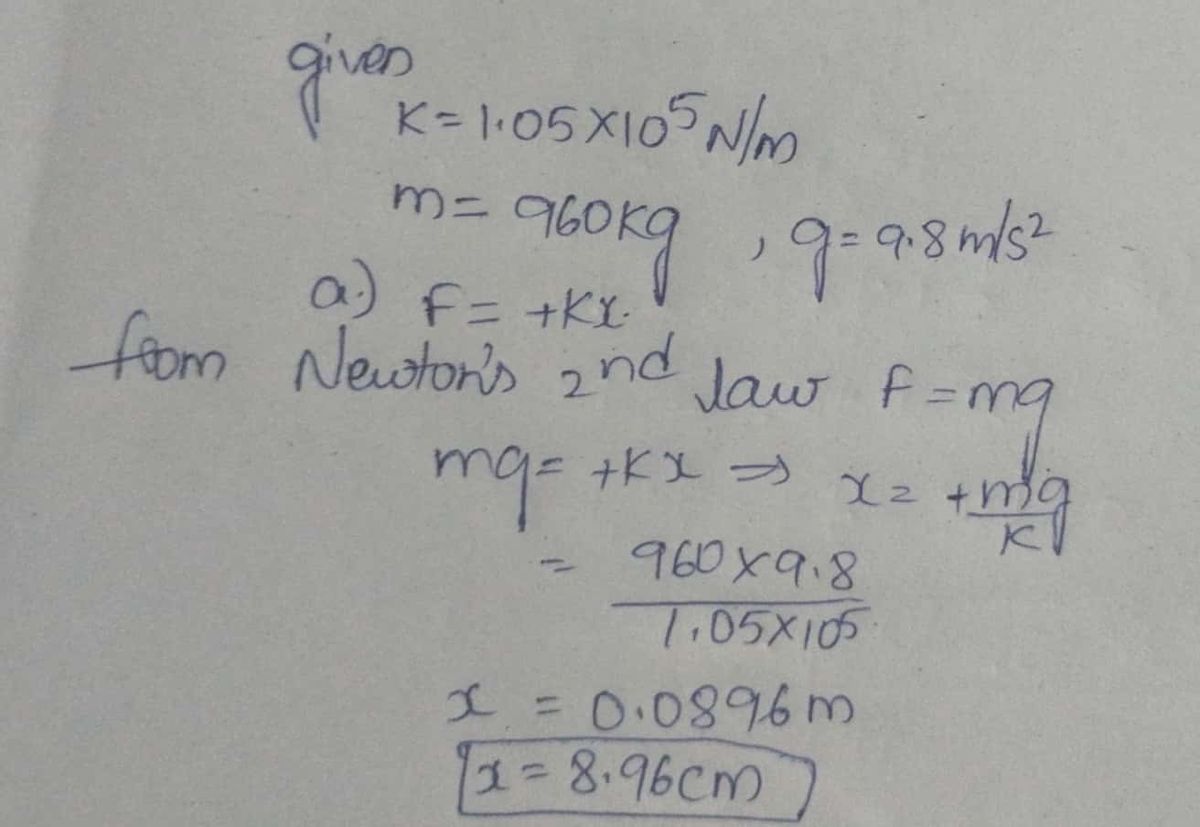 given
K=1.05×10⁵ N/m
m= 960kg , g=9.8 m/s²
a.) F= +Kx.
from Newton's 2nd law F=mg
mg= +Kx ⇒ x= +mg/K
= 960×9.8/1.05×10⁵
x = 0.0896m
x=8.96cm